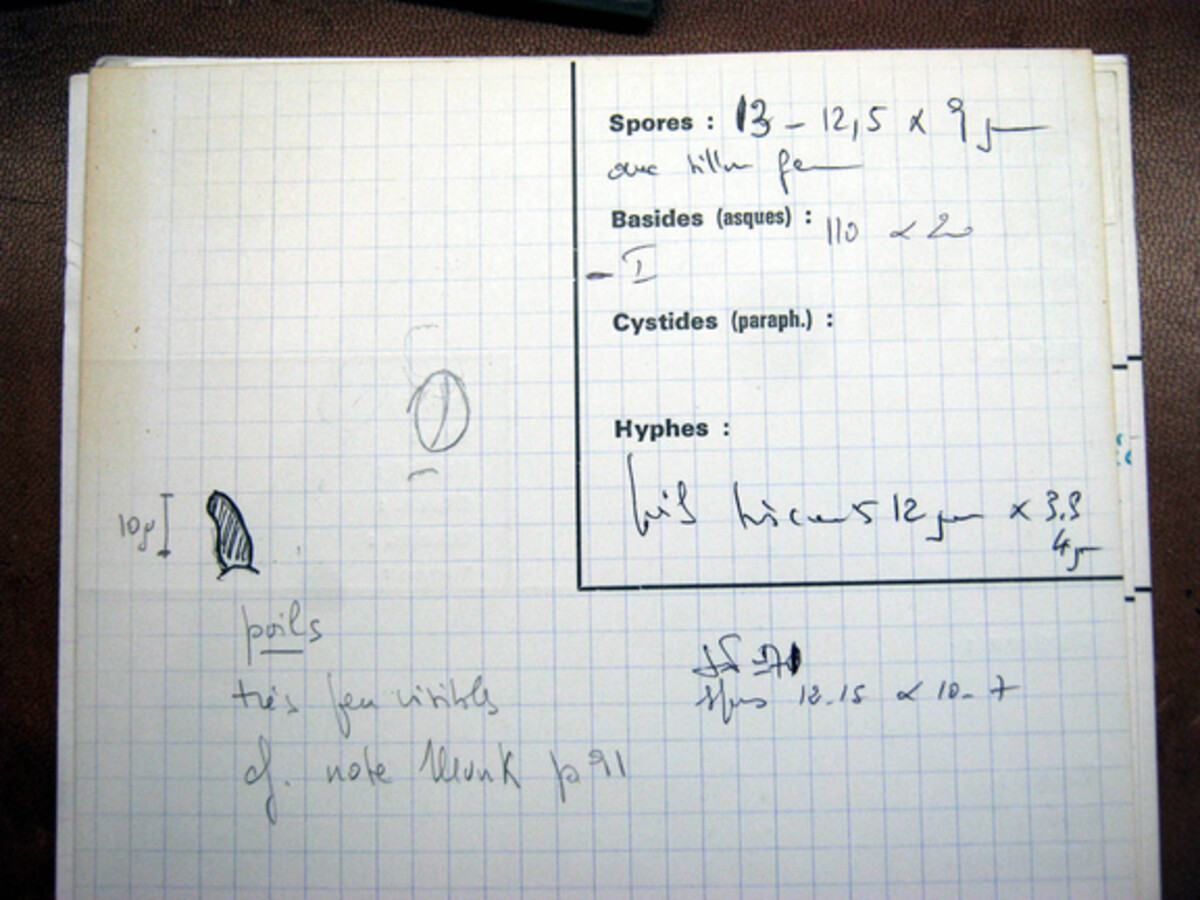 Spores : 13 - 12,5 x 9 µm
Basides (asques) : 110 x 20
- I
Cystides (paraph.) :
Hyphes :
12 µm x 3.3
4 µ
10 µ
poils
très peu visibles
cf. note Munk p 91
12-15 x 10-7